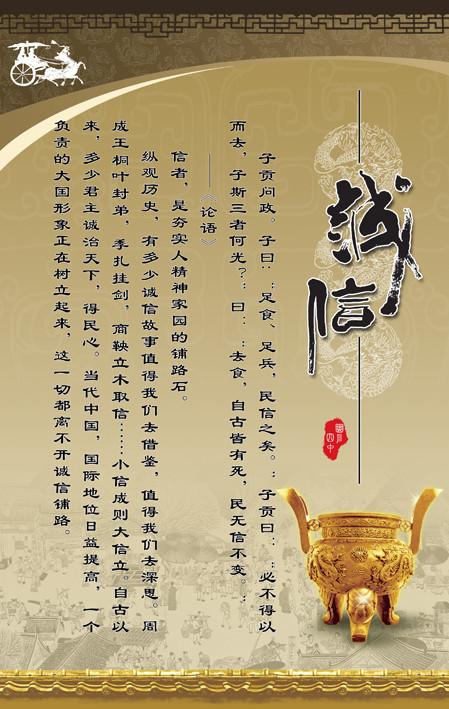 诚信
子贡问政。子曰:“足食、足兵,民信之矣。”子贡曰:“必不得以
而去,子斯三者何光?”曰:“去食,自古皆有死,民无信不变。”
——《论语》
信者,是夯实人精神家园的铺路石。
纵观历史,有多少诚信故事值得我们去借鉴,值得我们去深思。周
成王桐叶封弟,季扎挂剑,商鞅立木取信……小信成则大信立。自古以
来,多少君主诚治天下,得民心。当代中国,国际地位日益提高,一个
负责的大国形象正在树立起来,这一切都离不开诚信铺路。